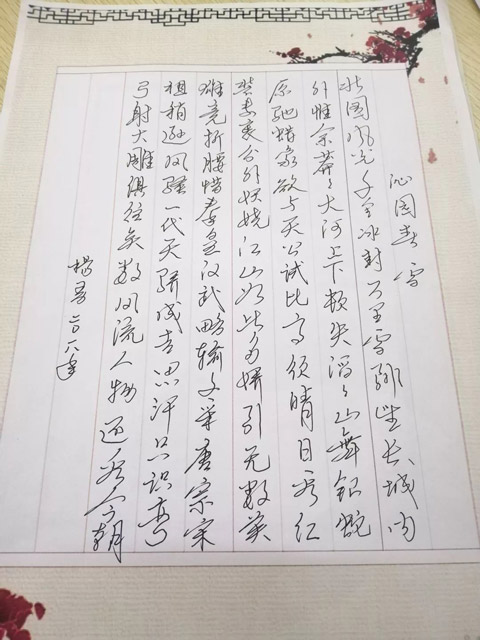 沁园春 雪
北国风光千里冰封万里雪飘望长城内
外惟余莽々大河上下顿失滔々山舞银蛇
原驰蜡象欲与天公试比高须晴日看红
装素裹分外妖娆江山如此多娇引无数英
雄竞折腰惜秦皇汉武略输文采唐宗宋
祖稍逊风骚一代天骄成吉思汗只识弯
弓射大雕俱往矣数风流人物还看今朝
杨 二〇一八年